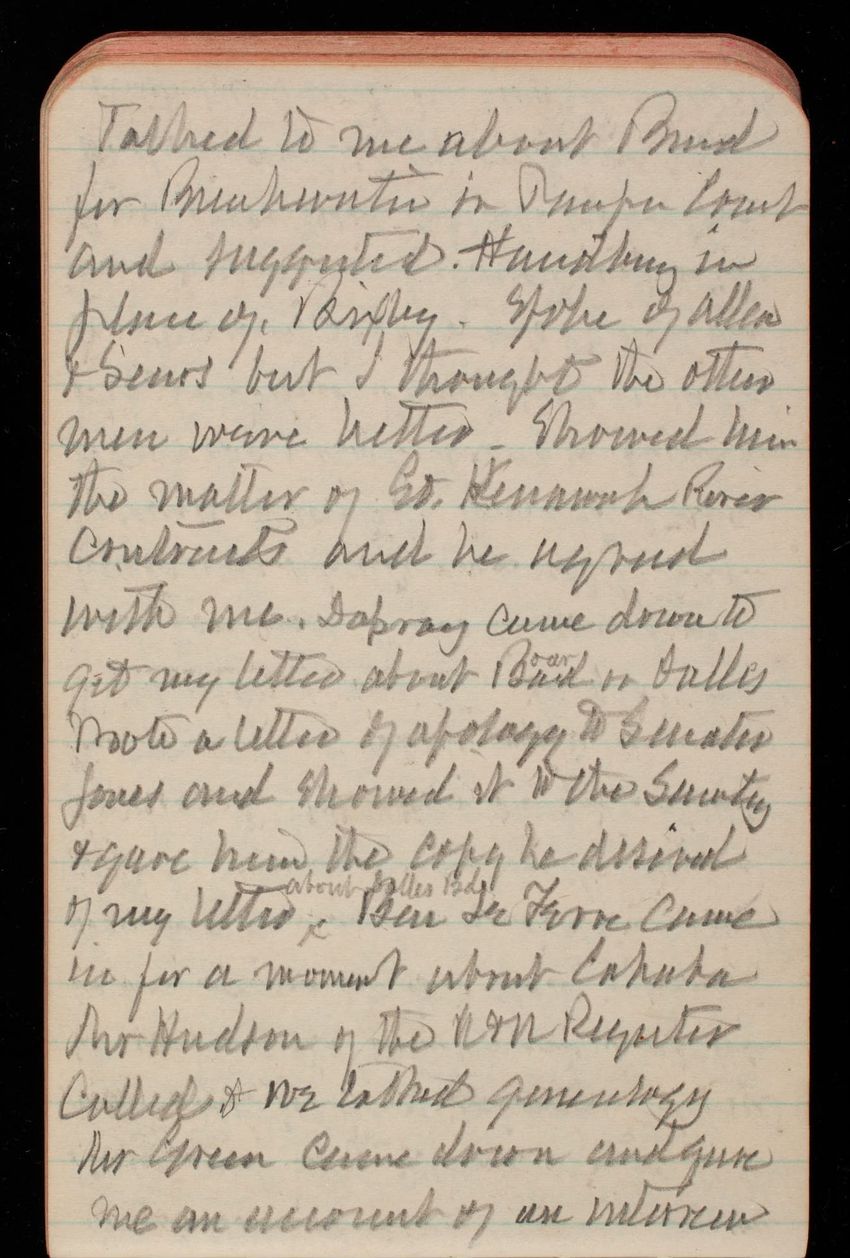 Talked to me about Brd
for Breakwater in Court
and suggested. Handbury in
place of. Bixby. Spoke of Allen
& Sears but I thought the other
men were better - Showed him
the matter of Gt. Kenawah River
Contracts and he agreed
with me. Dapray came down to
get my letter about Board on Dalles
Wrote a letter of apology to Senator
Jones and showed it to the Secretry
& gave him the copy he desired
of my letter x about Dalles Bd. Ben Le Fevre came
in for a moment about Cahaba
Mr Hudson of the N & N Register
Called & we talked genealogy
Mr Green came down and gave
me an account of an interview